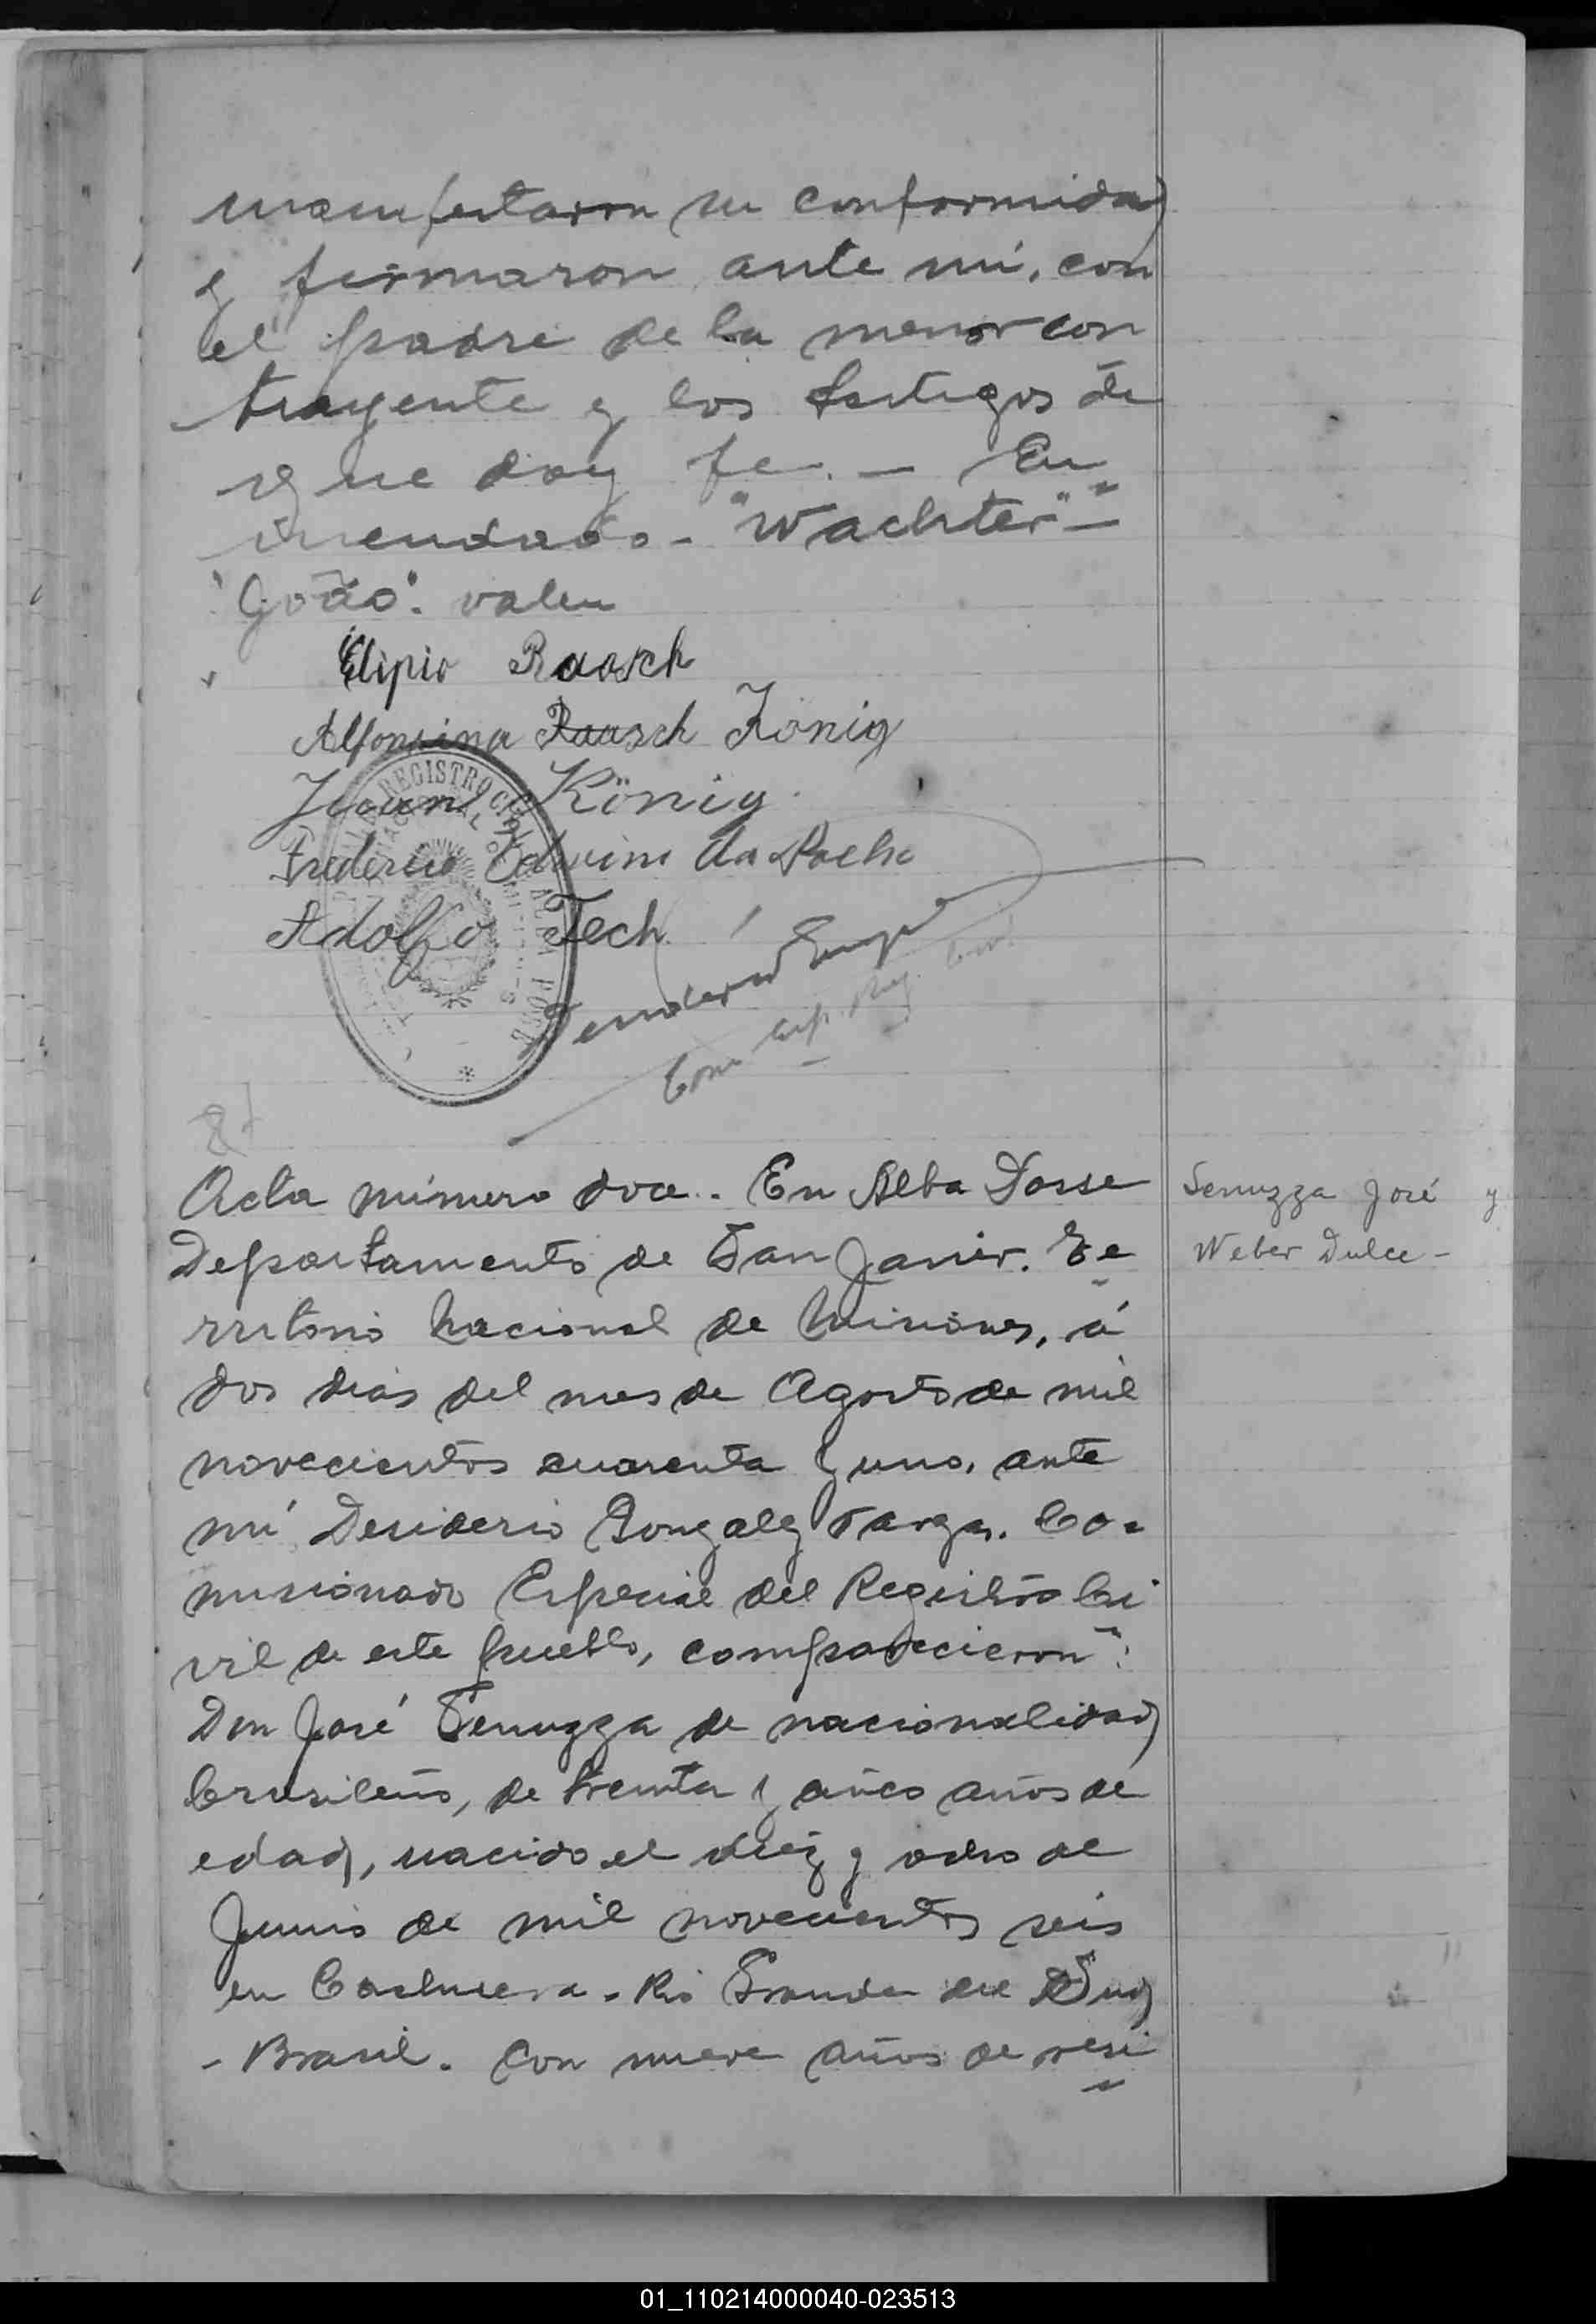 manifestaron su conformidad
y firmaron ante mí, con
el padre de la menor con
trayente y los testigos de
que doy fe. — En
mendado - "Wachter" =
"João". valen
Elipio Raasch
Alfonsina Raasch König
Juan König
Frederico Edvini da Rocha
Adolfo Tech
REGISTRO CIVIL
ALBA POSSE
Com Esp. Reg. Civil
Acta número doce. En Alba Posse
Departamento de San Javier. Te
rritorio Nacional de Misiones, á
dos dias del mes de Agosto de mil
novecientos cuarenta y uno, ante
mí Desiderio Gonzalez Vargas. Co-
misionado Especial del Registro Ci
vil de este pueblo, comparecieron":
Don José Senuzza de nacionalidad
brasileño, de treinta y cinco años de
edad, nacido el diez y ocho de
Junio de mil novecientos seis
en Cachuera. Rio Grande del Sud
- Brasil. Con nueve años de resi
Senuzza José y
Weber Dulce -
01_110214000040-023513